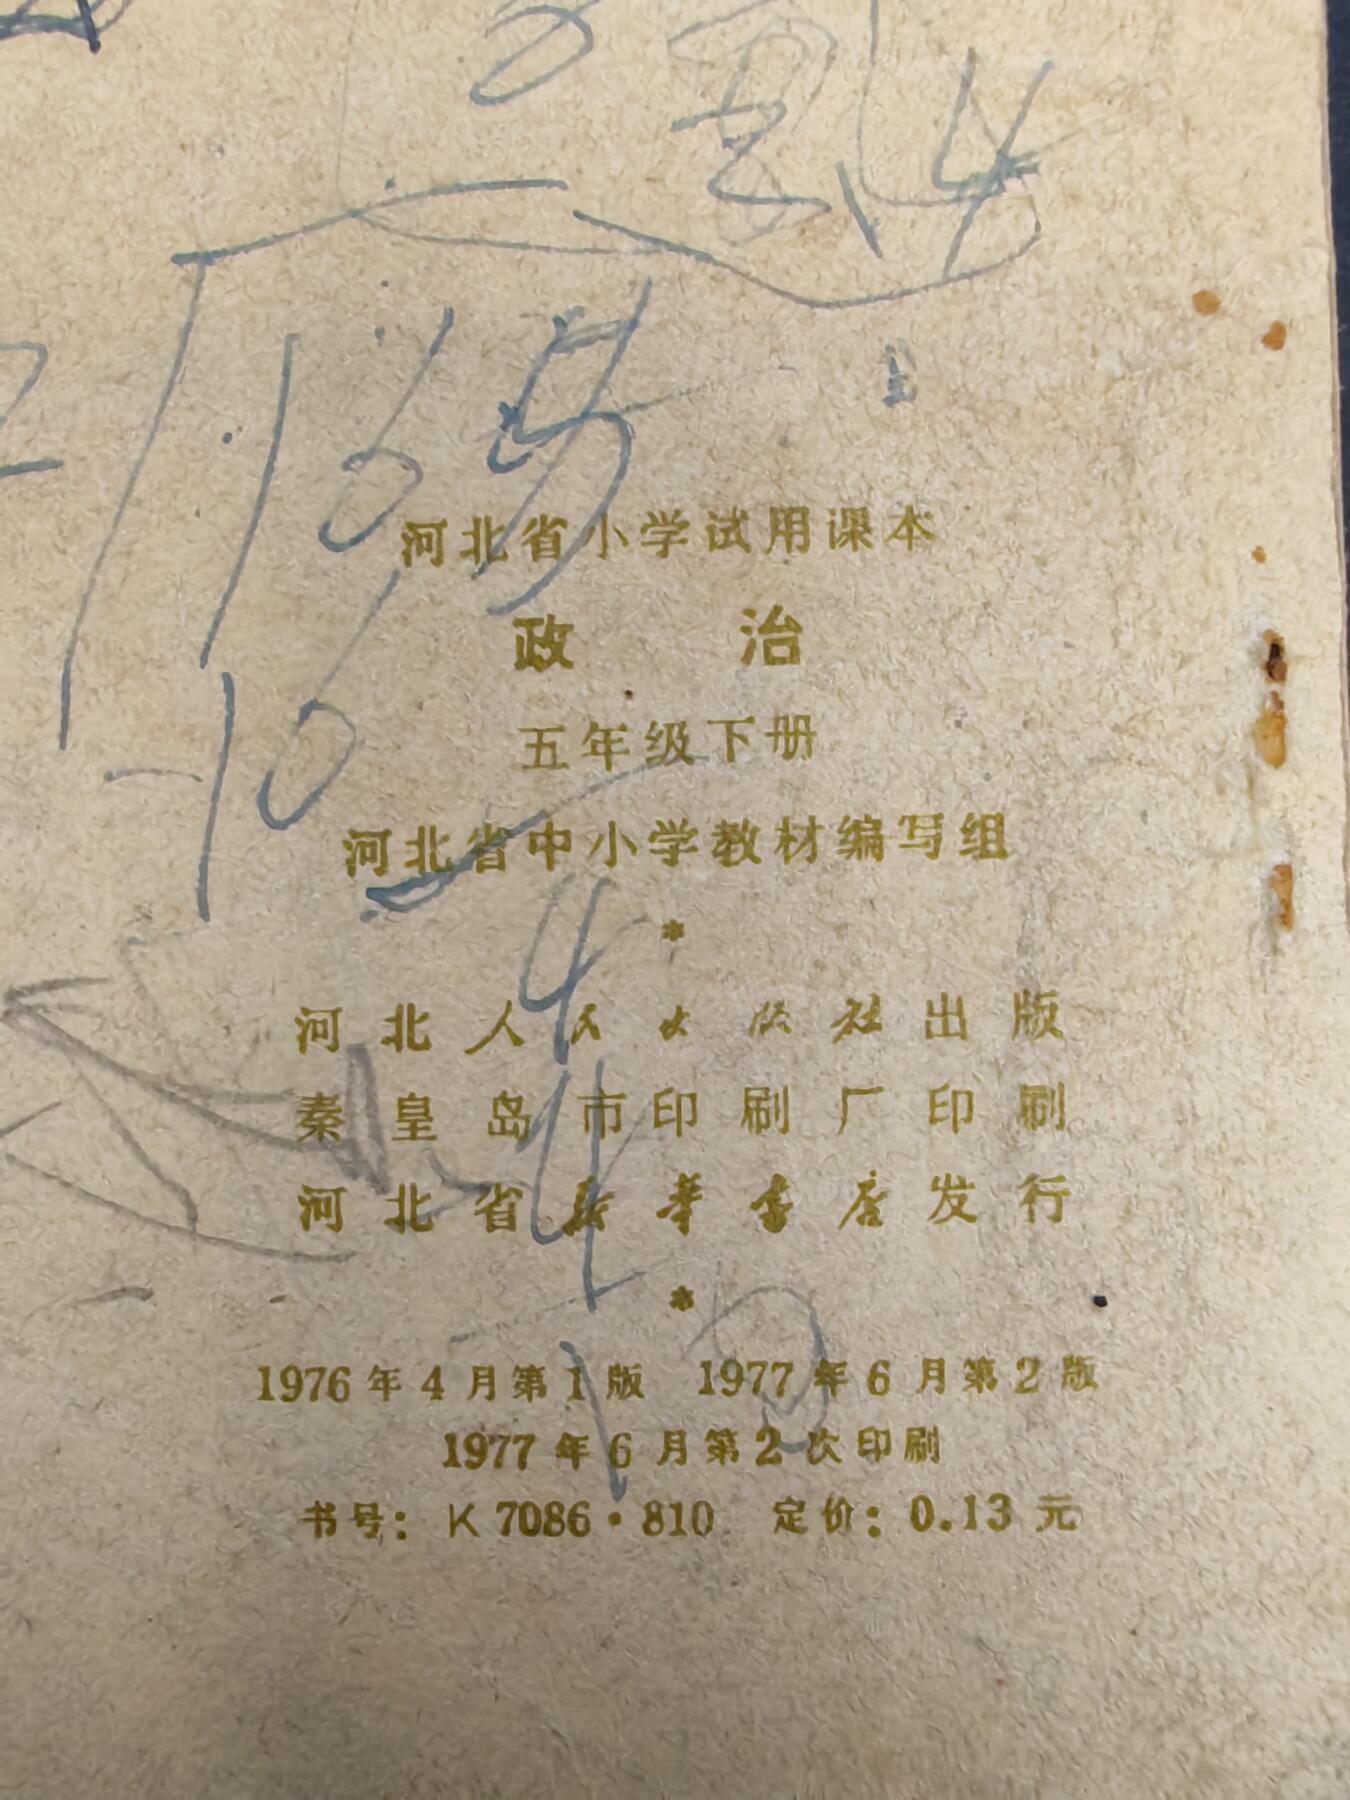 河北省小学试用课本
政 治
五年级下册
河北省中小学教材编写组
*
河北人民出版社出版
秦皇岛市印刷厂印刷
河北省新华书店发行
*
1976年4月第1版 1977年6月第2版
1977年6月第2次印刷
书号：K 7086·810 定价：0.13 元